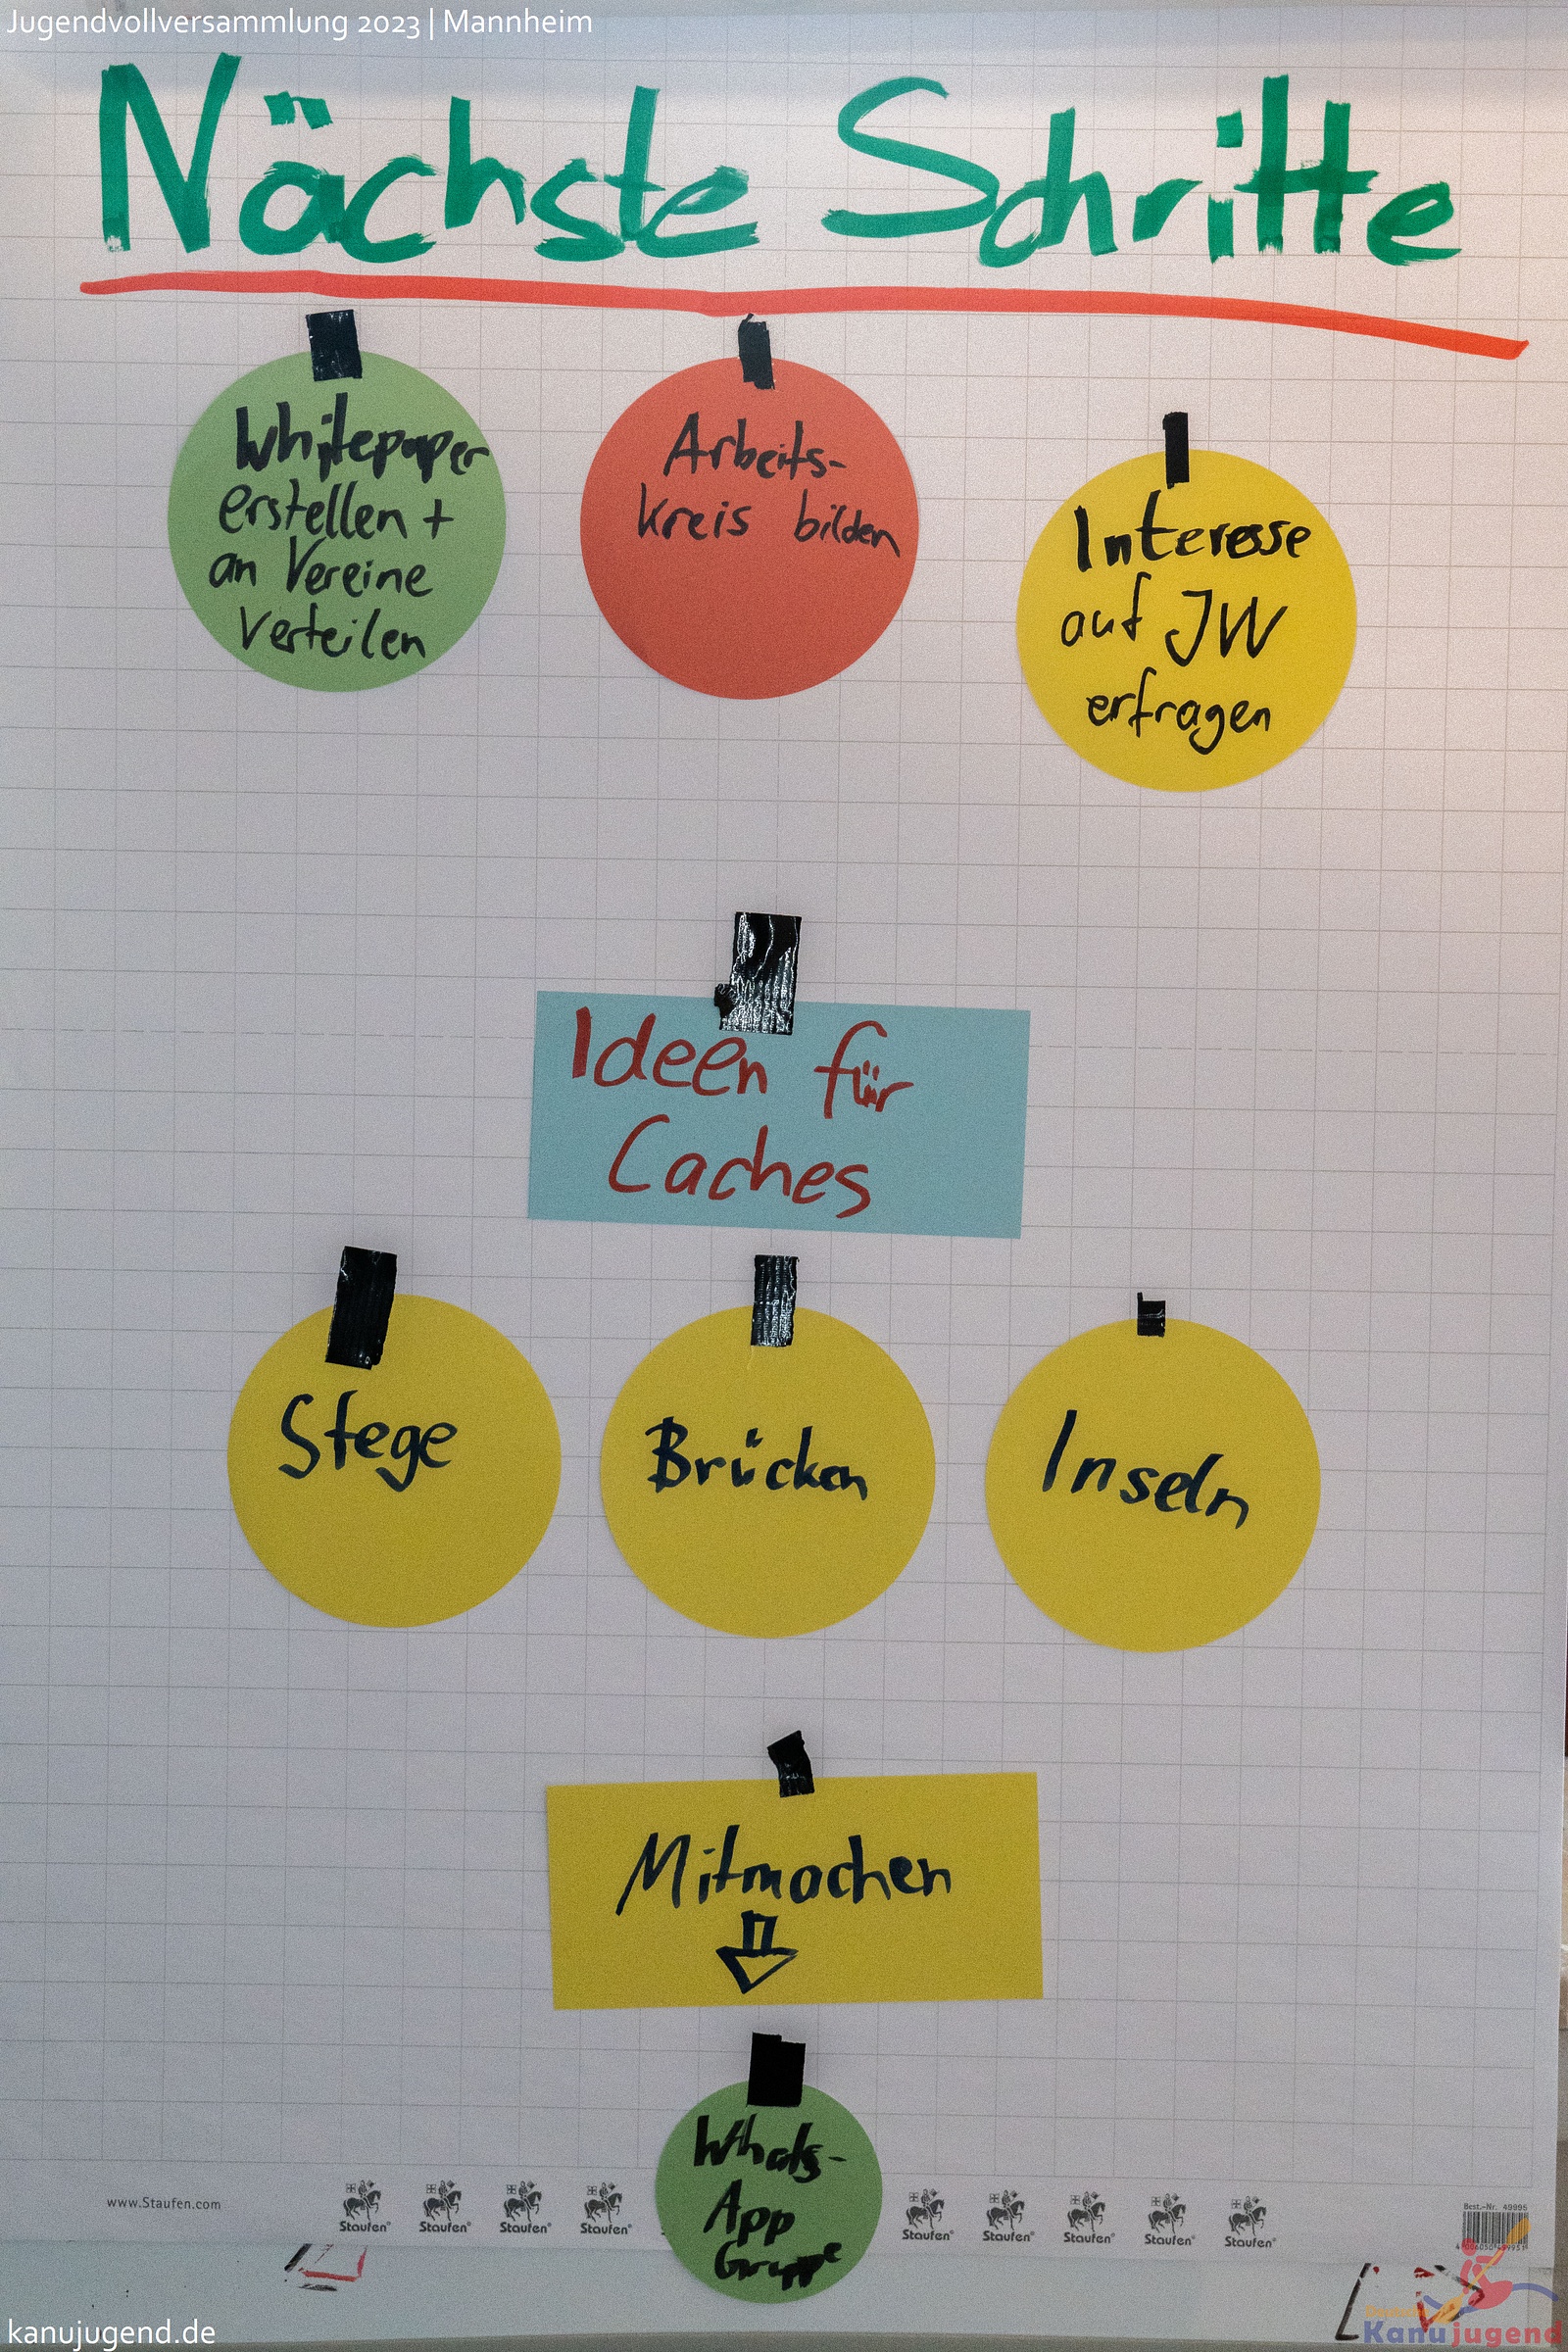 Jugendvollversammlung 2023 | Mannheim
Nächste Schritte
Whitepaper
erstellen +
an Vereine
Verteilen
Arbeits-
kreis bilden
Interesse
auf JW
erfragen
Ideen für
Caches
Stege
Brücken
Inseln
Mitmachen
Whats-
App
Gruppe
www.Staufen.com
Staufen® Staufen® Staufen® Staufen® Staufen® Staufen® Staufen® Staufen® Staufen®
Best.-Nr. 49995
kanujugend.de
Deutsche
Kanujugend